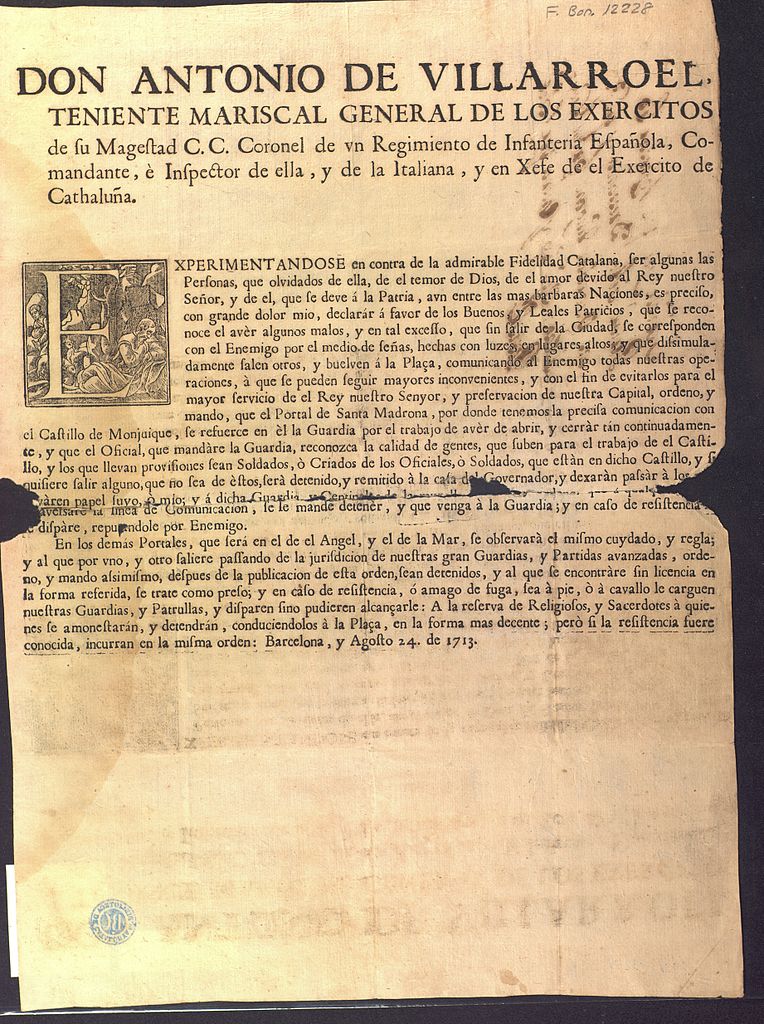 F. Bon. 12228
DON ANTONIO DE VILLARROEL,
TENIENTE MARISCAL GENERAL DE LOS EXERCITOS
de ſu Mageſtad C. C. Coronel de vn Regimiento de Infanteria Eſpañola, Co-
mandante, è Inſpector de ella, y de la Italiana, y en Xefe de el Exercito de
Cathaluña.
EXPERIMENTANDOSE en contra de la admirable Fidelidad Catalana, ſer algunas las
Perſonas, que olvidados de ella, de el temor de Dios, de el amor devido al Rey nueſtro
Señor, y de el, que ſe deve á la Patria, avn entre las mas barbaras Naciones, es preciſo,
con grande dolor mio, declarár á favor de los Buenos, y Leales Patricios, que ſe reco-
noce el avèr algunos malos, y en tal exceſſo, que ſin ſalir de la Ciudad, ſe correſponden
con el Enemigo por el medio de ſeñas, hechas con luzes, en lugares altos, y que diſsimula-
damente ſalen otros, y buelven á la Plaça, comunicando al Enemigo todas nueſtras ope-
raciones, à que ſe pueden ſeguir mayores inconvenientes, y con el fin de evitarlos para el
mayor ſervicio de el Rey nueſtro Senyor, y preſervacion de nueſtra Capital, ordeno, y
mando, que el Portal de Santa Madrona, por donde tenemos la preciſa comunicacion con
el Caſtillo de Monjuique, ſe refuerce en èl la Guardia por el trabajo de avèr de abrir, y cerràr tán continuadamen-
te, y que el Oficial, que mandàre la Guardia, reconozca la calidad de gentes, que ſuben para el trabajo de el Caſti-
llo, y los que llevan proviſiones ſean Soldados, ò Criados de los Oficiales, ò Soldados, que eſtàn en dicho Caſtillo, y ſi
quiſiere ſalir alguno, que no ſea de èſtos, ſerà detenido, y remitido à la caſa del Governador, y dexaràn paſsàr à los
vàren papel ſuyo, ò mio; y á dicha Guardia, y
aveſsàre la linea de Comunicacion, ſe le mande detenèr, y que venga à la Guardia; y en caſo de reſiſtencia
diſpàre, reputandole por Enemigo.
En los demàs Portales, que ſerá en el de el Angel, y el de la Mar, ſe obſervarà el miſmo cuydado, y regla;
y al que por vno, y otro ſaliere paſſando de la juriſdicion de nueſtras gran Guardias, y Partidas avanzadas, orde-
no, y mando aſsimiſmo, deſpues de la publicacion de eſta orden, ſean detenidos, y al que ſe encontràre ſin licencia en
la forma referida, ſe trate como preſo; y en càſo de reſiſtencia, ó amago de fuga, ſea à pie, ò à cavallo le carguen
nueſtras Guardias, y Patrullas, y diſparen ſino pudieren alcançarle: A la reſerva de Religioſos, y Sacerdotes à quie-
nes ſe amoneſtarán, y detendrán, conduciendolos à la Plaça, en la forma mas decente; però ſi la reſiſtencia fuere
conocida, incurran en la miſma orden: Barcelona, y Agoſto 24. de 1713.